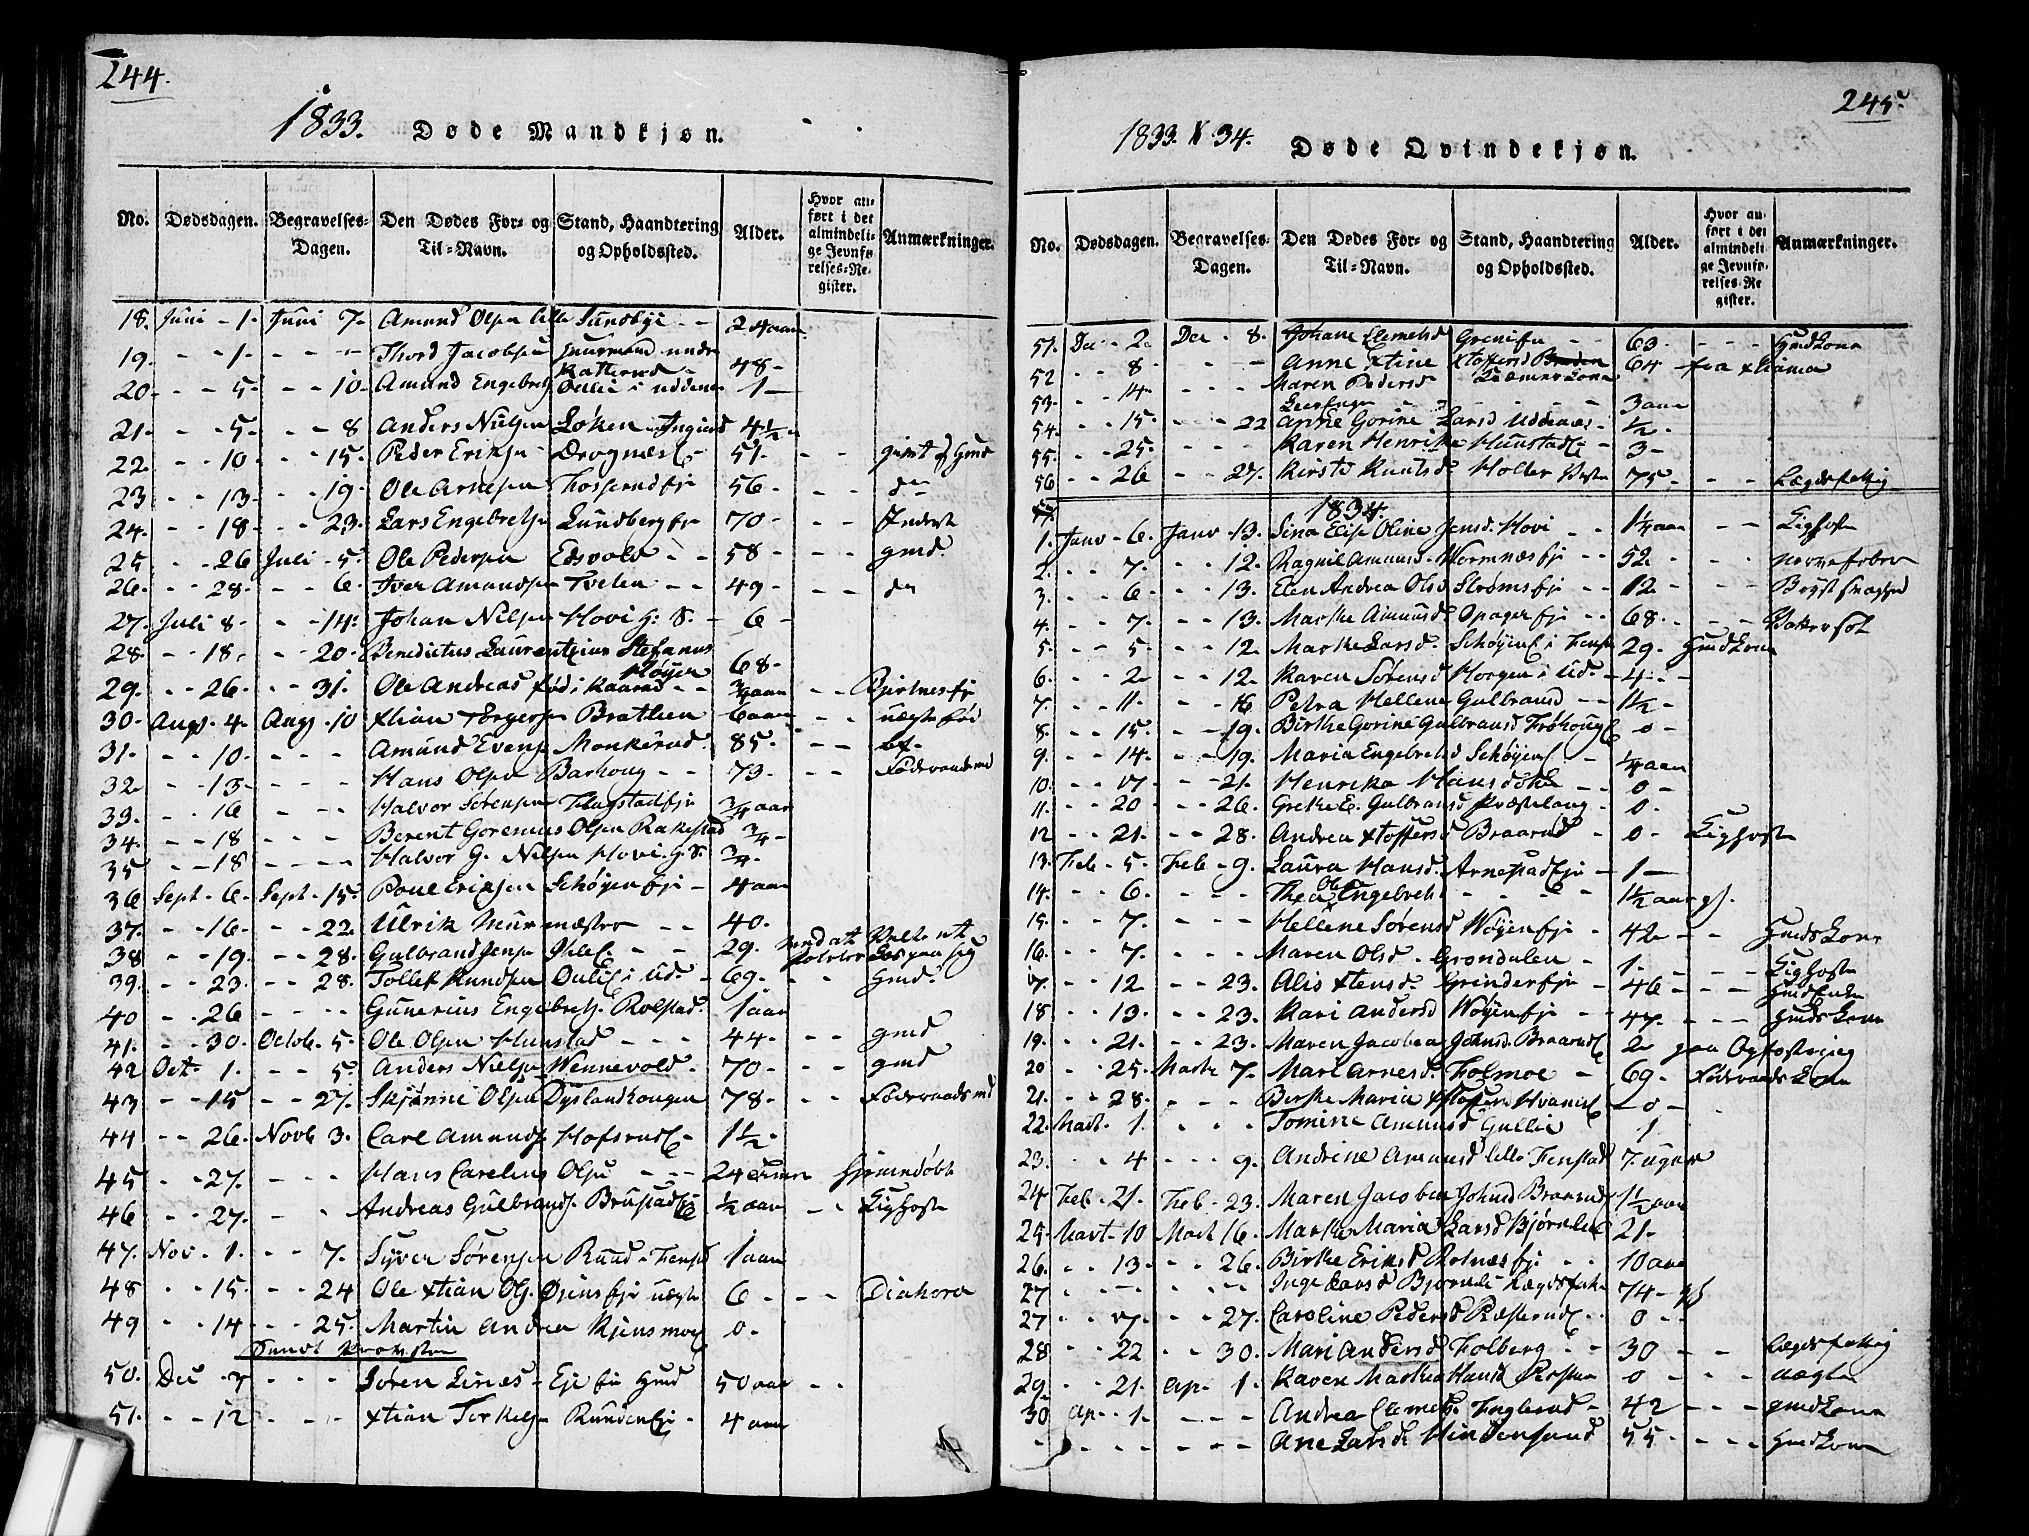 244.
1833. Døde Mandkjøn.
No. Dødsdagen. Begravelses-Dagen. Den Dødes For- og Til-Navn. Stand, Haandtering og Opholdssted. Alder. Hvor anført i det almindelige Jevnførelses-Register. Anmærkninger.
18. Juni - 1. Juni 7. Amund Olsen lille Sundbye - - 24 aar
19. - - 1. - - - Thord Jacobsen nedre 48 -
20. - - 5. - - 10. Amund Engebrets Oulie i uddenes 1 -
21. - - 5. - - 8 Anders Nielsen Løken 4½ -
22. - - 10 - - 15. Peder Eriksen Dragnæs 51. - -
23 - - 13. - - 19. Ole Arnesen 56 - - -
24. - - 18. - - 23. Lars Engebretsen Lundberg 70 - - - Inderst
25 - - 26 Juli - 5. Ole Pedersen Edsvold - - 58 - - - gmd.
26. - - 28. - - 6. Iver Amundsen Tveten - - 49 - - - do
27. Juli 8. - - 14. Johan Nielsen Hovi g: S. - 6 -
28. - - 18. - - 20. Benedictus Laurentzius Stefanus Høyer 68.
29. - - 26. - - 31. Ole Andreas fød i - - ¾ aar - -
30. Aug. 4. Aug 10 Xtian Torgersen Brathen 6 aar - - uægte fød
31. - - 10. - - - Amund Evens Monkerud. 85. - -
32. - - 13. - - - Hans Olsen Barhoug - - 73. - - Føderaadsmd
33. - - 16 - - Halvor Sørensen Flagstad ¾ aar
34. - - 18 - - - Berent Goremus Olsen Rakestad ¾ -
35 - - 18. - - - Halvor G. Nielsen Hovi. g. S. ¾.
36 Sept - 6. Sept. 15. Poul Eriksen Schøyen - 4 aar
37. - - 16. - - 22. Ulrik Murmæster - - 40.
38 - - 19. - - 28. Gulbrand Jensen - - 29.
39. - - 23. - - 28. Tollef Knudsen Oulie i Ud. - 69. - - Gmd.
40 - - 26 - - - Gunerius Engebrets. Rolstad. 1 aar
41. - - 30. Octob. 5. Ole Olsen Hunstad - - - 44. - - gmd
42 Oct. 1. - - 5. Anders Nielsen Wennevold. 70 - - - gmd
43 - - 15 - - 27. Skjønni Olsen Dyslandhougen 78 - - - Føderaadsmd
44 - - 26. Novb 3. Carl Amunds Hofsrud 1½ -
45 - - 27. - - - Hans Carelius Olsen - - - 24 timer hjemmedøbt
46 - - 27. - - Andreas Gulbrands. Brustad ½ aar - - Kighoste
47. Nov. 1. - - 7. Syver Sørensen Ruud i Fenstd 1 aar
48 - - 15. - - 24 Ole Xtian Ols. uægte 6 - - - Diahora
49 - - 14 - - 25. Martin Andrea Kjensmoe 0.
50. Dec - - - Søren Lines - Eje 50 aar - -
51. - - 12 - - - Xtian Torkels. Runden 4 aar
245
1833. & 34. Døde Qvindekjøn.
No. Dødsdagen. Begravelses-Dagen. Den Dødes For- og Til-Navn. Stand, Haandtering og Opholdssted. Alder. Hvor anført i det almindelige Jevnførelses-Register. Anmærkninger.
51. De - 2. Dec. 8. Johane Clemetsd 63. - - - Gmdkone
52 - - 8 - - - Anne Xtine Xtoffersd 64 - fra Xtiania
53. - - 14. - - - Maren Pedersd 3 aar
54. - - 15. - - 22 Anne Gorine Larsd Uddenæs - ½ -
55. - - 25. - - - Karen Henrikke Hunstad - 3 -
56 - - 26 - - 27. Kirsti Knutsd Holter 75 - - - Lægdsfattig
1834.
1. Janv - 6. Janv 13. Sina Elise Oline Jensd. Hovi - ¼ aar - - Kighoste
2. - - 7. - - 12. Ragnil Amunds. Wormnæs - 52. - - - Nervefeber
3. - - 6. - - 13. Elen Andrea Olsd Strøms - - 12 - - - Brystsvaghed
4. - - 7. - - 13. Marthe Amunsd Opager - - 68. - - - Vattersot
5. - - 5. - - 12. Marthe Larsd. Schøyen i Fenst 29. Gmdkone
6. - - 2 - - 12. Karen Sørensd Horgen i Ud. - 4 - -
7. - - 11. - - 16 Petra Hellene Gulbrand - - 1½ -
8. - - 15. - - 19. Birthe Gorine Gulbransd Frøhoug 0 -
9. - - 14. - - 19. Maria Engebretsd Schøyen - ¼ aar
10. - - 17. - - 21. Henrika Hansd - 0 -
11. - - 20 - - 26. Grethe E. Gulbransd - 0.
12 - - 21. - - 28. Andrea Xtoffersd Braarud - 0 - Kighoste
13. Feb - 5. Feb - 9. Laura Hansd. Arnestad - 1 -
14. - - 6. - - - Thea Ols Engebrets - - - 1½ aar
15. - - 7. - - - Hellene Sørensd Wøyen - 42 - - - Gmdskone
16. - - 7. - - - Maren Olsd. Grøndalen - 1. - - - Kighoste
17. - - 12 - - 23. Alis Xtensd. Grinder - 46 - - -
18 - - 13. - - 23. Kari Andersd Wøyen - - 47. - - - Gmdskone
19. - - 21. - - 23. Maren Jacobea Johnsd. Braarud 2
20 - - 25. Marts 7. Mari Arnesd. Folmoe - 69. - Føderaadskone
21. - - 28. - - - Birthe Maria Xtoffers Hvam - 0 -
22. Mart. 1. - - - Tomine Amunsd Gullie 1
23. - - 4 - - - 9. Andrine Amunsd lille Fenstad 7. uger
24 Feb - 21. Feb - 23. Maren Jacobea Johnsd Braarud 1½ aar
25. Mart - 10 Mart 16. Marthe Maria Larsd Bjørnlie 21. -
26. - - 13. - - 26. Birthe Eriksd Rolnæs - - 10 aar
27 - - - - - - Inge Larsd Bjørnli Lægdsfatte 74 -
27 - - 17. - - 27. Caroline Pedersd Næsterud - - 0 - -
28 - - 22 - - 30. Mari Andersd Folberg - - 30 - - Lægdsfattig
29. - - 21. Ap. - 1. Karen Marthea Hansd 0 - - - uægte
30 Ap - 1. - - - Andrea Clemets. Fuglerud - 42 - - - gmdkone
- - - - - - - Ane Larsd Hindensand 55 - - - Gmdkone